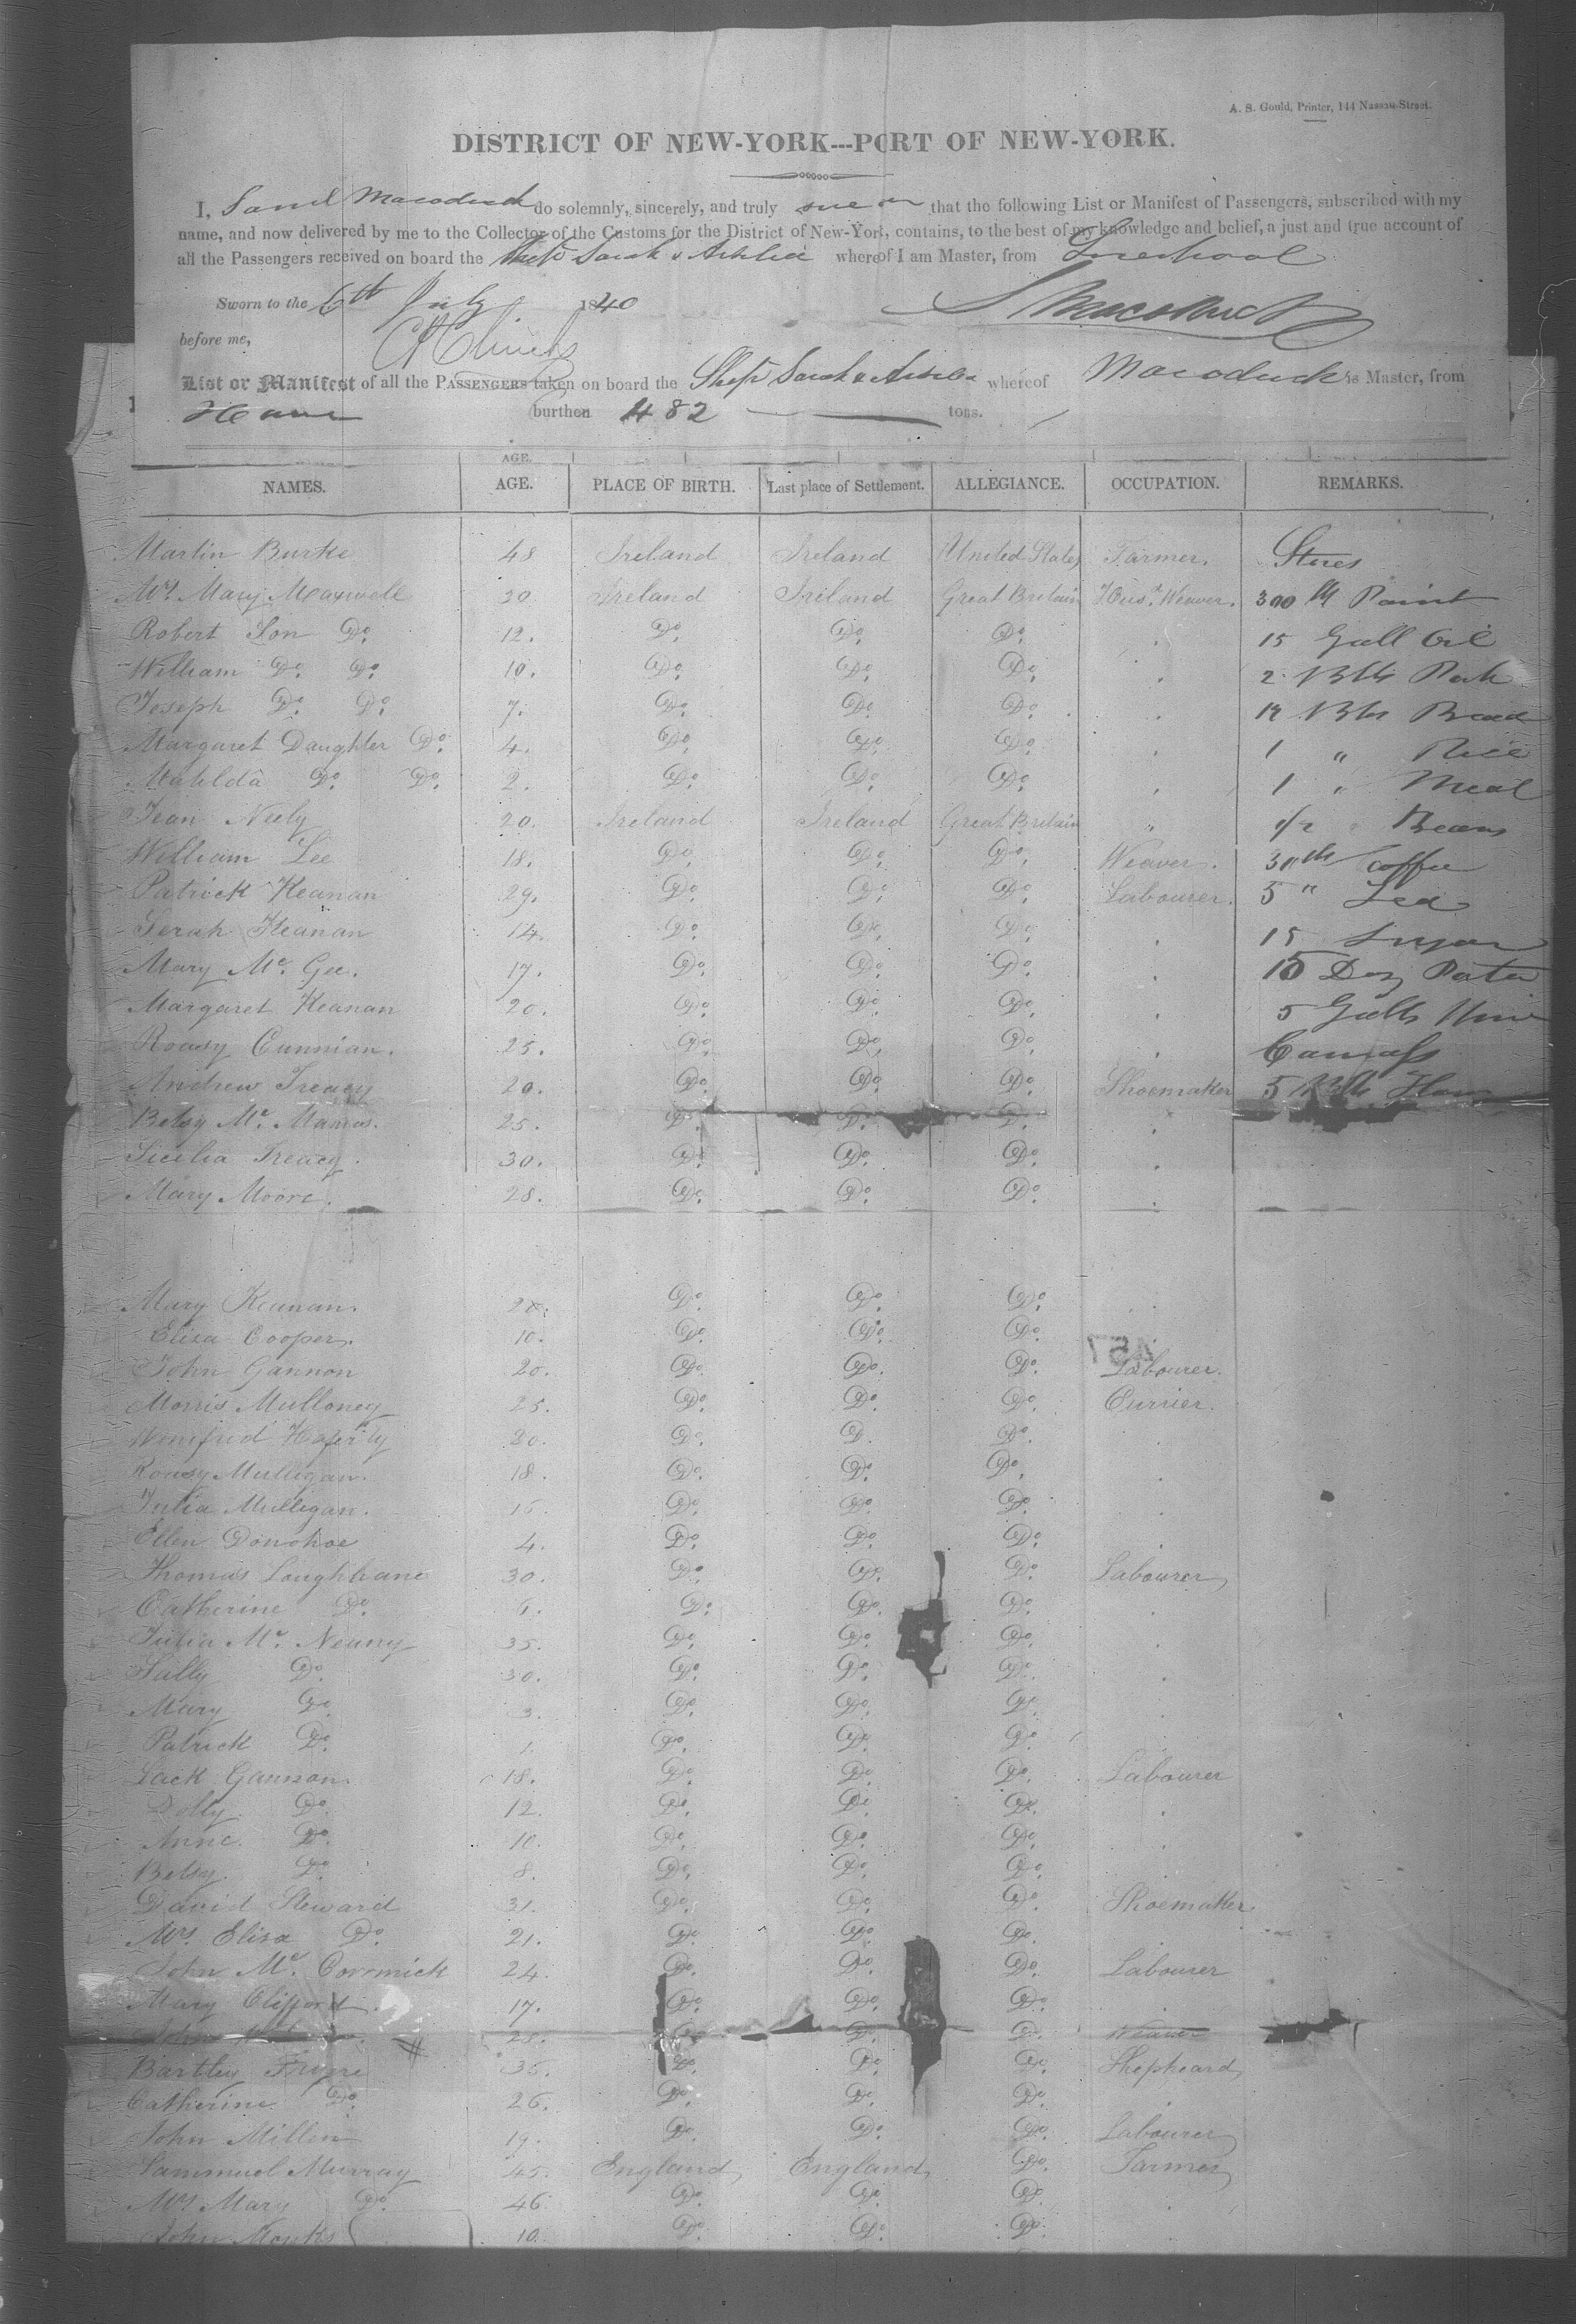 A. S. Gould, Printer, 144 Nassau-Street.
DISTRICT OF NEW-YORK---PORT OF NEW-YORK.
I, do solemnly, sincerely, and truly that the following List or Manifest of Passengers, subscribed with my
name, and now delivered by me to the Collector of the Customs for the District of New-York, contains, to the best of my knowledge and belief, a just and true account of
all the Passengers received on board the Sarah & whereof I am Master, from
Sworn to the 6th July 1840
before me,
List or Manifest of all the PASSENGERS taken on board the Ship Sarah & whereof Macoduck is Master, from
burthen 482 tons.
AGE.
NAMES. AGE. PLACE OF BIRTH. Last place of Settlement. ALLEGIANCE. OCCUPATION. REMARKS.
Martin Burke 48 Ireland Ireland United States Farmer. Stores
Mrs. Mary Maxwell 30 Ireland Ireland Great Britain Weaver. 300 lb Paint
Robert Son Do. 12. Do. Do. Do. 15 Gall Oil
William Do. Do. 10. Do. Do. Do. 2 Bbls Pork
Joseph Do. Do. 7. Do. Do. Do. Bread
Margaret Daughter Do. 4. Do. Do. Do. 1 " Rice
Matilda Do. Do. 2. Do. Do. Do. 1 " Meal
Jean Neely 20. Ireland Ireland Great Britain " 1/2 " Beans
William Lee 18. Do. Do. Do. Weaver. Coffee
Patrick Keanan 29. Do. Do. Do. Labourer. 5 " Tea
Serah Keanan 14. Do. Do. Do. 15 Sugar
Mary Mc. Gee. 17. Do. Do. Do. Doz
Margaret Keanan 20. Do. Do. Do. 5 Galls
Roasy Cunnian. 25. Do. Do. Do. Canvass
Andrew Treacy 20. Do. Do. Do. Shoemaker 5 Bbls
Betsy Mc. Manus. 25. Do. Do. Do.
Sicelia Treacy. 30. Do. Do. Do.
Mary Moore. 28. Do. Do. Do.
Mary Keanan. Do. Do. Do.
Elisa Cooper. 10. Do. Do. Do.
John Gannon 20. Do. Do. Do. Labourer.
Morris Mulloney 25. Do. Do. Do. Currier.
Winifred 20. Do. D. Do.
Roasy Mulligan. 18. Do. Do. Do.
Julia Mulligan. 15. Do. Do. Do.
Ellen Donohoe 4. Do. Do. Do.
Thomas Loughhane 30. Do. Do. Do. Labourer
Catherine Do. 6. Do. Do. Do.
Julia Mc. 35. Do. Do. Do.
Sally Do. 30. Do. Do. Do.
Mary Do. 3. Do. Do. Do.
Patrick Do. 1. Do. Do. Do.
Jack Gannon. 18. Do. Do. Do. Labourer
Dolly Do. 12. Do. Do. Do.
Anne. Do. 10. Do. Do. Do.
Betsy. Do. 8. Do. Do. Do.
David Steward 31. Do. Do. Do. Shoemaker
Mrs. Elisa Do. 21. Do. Do. Do.
John Mc. Cormick 24. Do. Do. Do. Labourer
Mary Clifford. 17. Do. Do. Do.
John # 25. Do. Do. Do. Weaver
Bartley 36. Do. Do. Do. Shepheard
Catherine Do. 26. Do. Do. Do.
John Millin 19. Do. Do. Do. Labourer
Sammuel Murray 45. England England Do. Farmer
Mrs. Mary Do. 46. Do. Do. Do.
John Monks 10. Do. Do. Do.